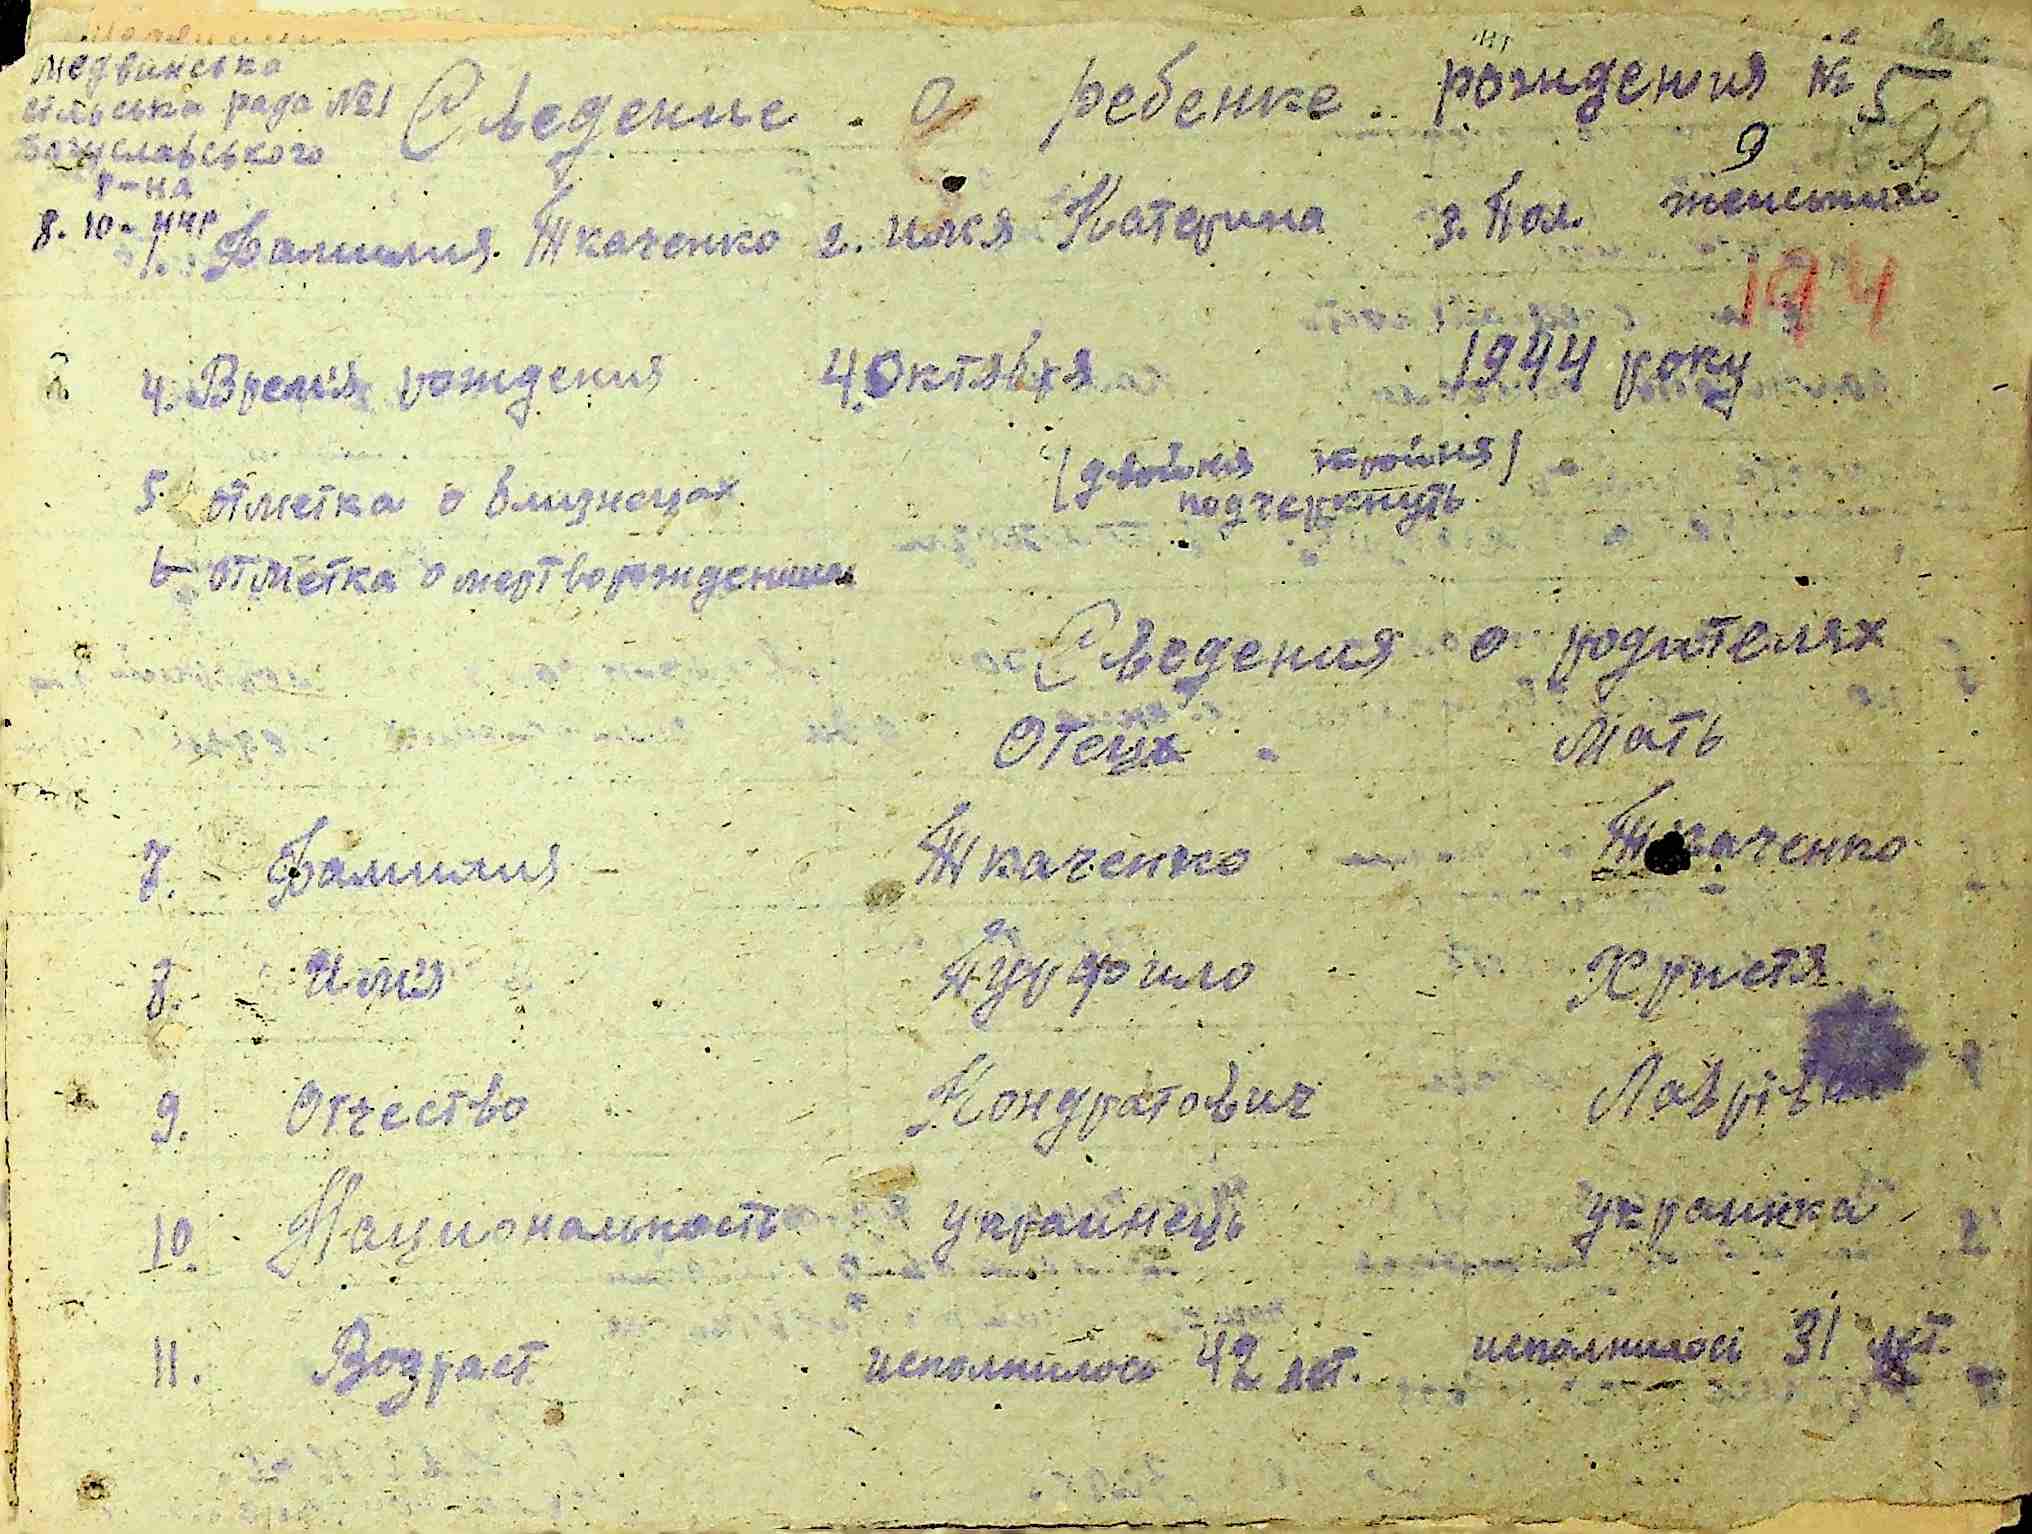 Медвинська
сільська рада №1
Богуславського
р-на
8.10-44р
Сведение о ребенке рождения № 5
9
1. Фамилия Ткаченко 2. имя Катерина 3. Пол. женский
194
4. Время рождения 4. Октября 1944 року
5. отметка о близнецах (двойня тройня)
подчеркнуть
6 отметка о мертворождении
Сведения о родителях
Отец Мать
7. Фамилия Ткаченко Ткаченко
8. Имя Пурфило Христя
9. Отчество Кондратович Лаврівна
10. Национальность украйнець украинка
11. Возраст исполнилось 42 лет. исполнилось 31 лет.